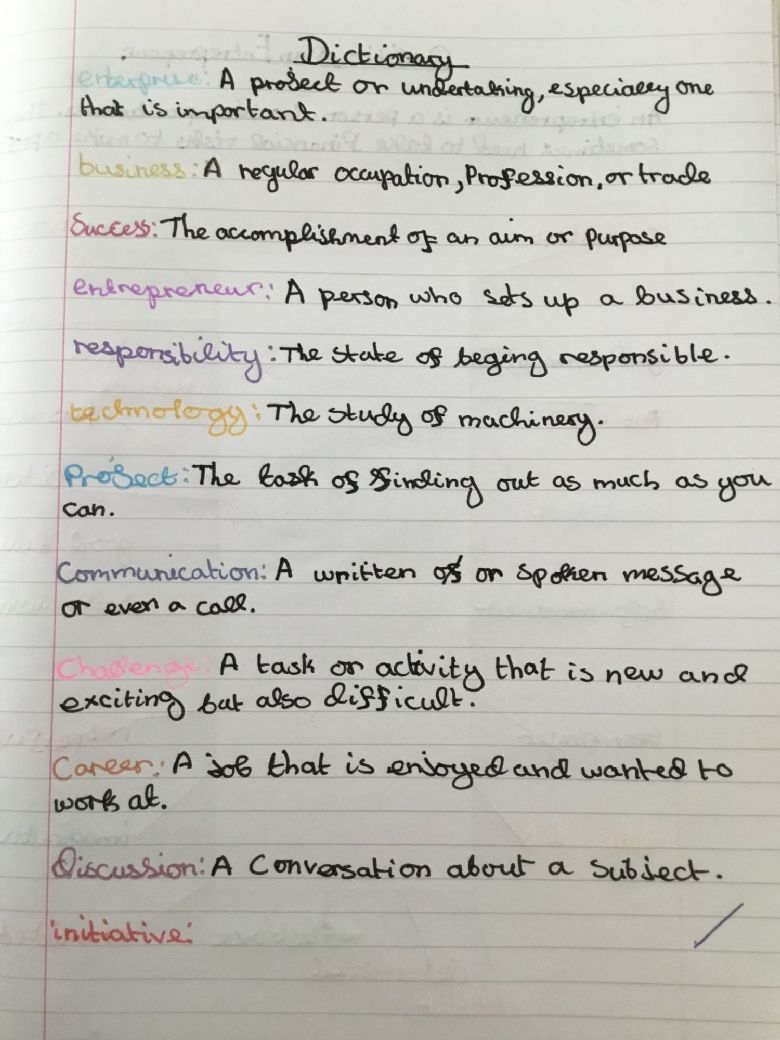 Dictionary
enterprise: A project or undertaking, especially one
that is important.
business: A regular occupation, Profession, or trade
Success: The accomplishment of an aim or purpose
entrepreneur: A person who sets up a business.
responsibility: The state of beging responsible.
technology: The study of machinery.
Project: The task of finding out as much as you
can.
Communication: A written of or spoken message
or even a call.
Challenge: A task or activity that is new and
exciting but also difficult.
Career: A job that is enjoyed and wanted to
work at.
Discussion: A Conversation about a Subject.
initiative: